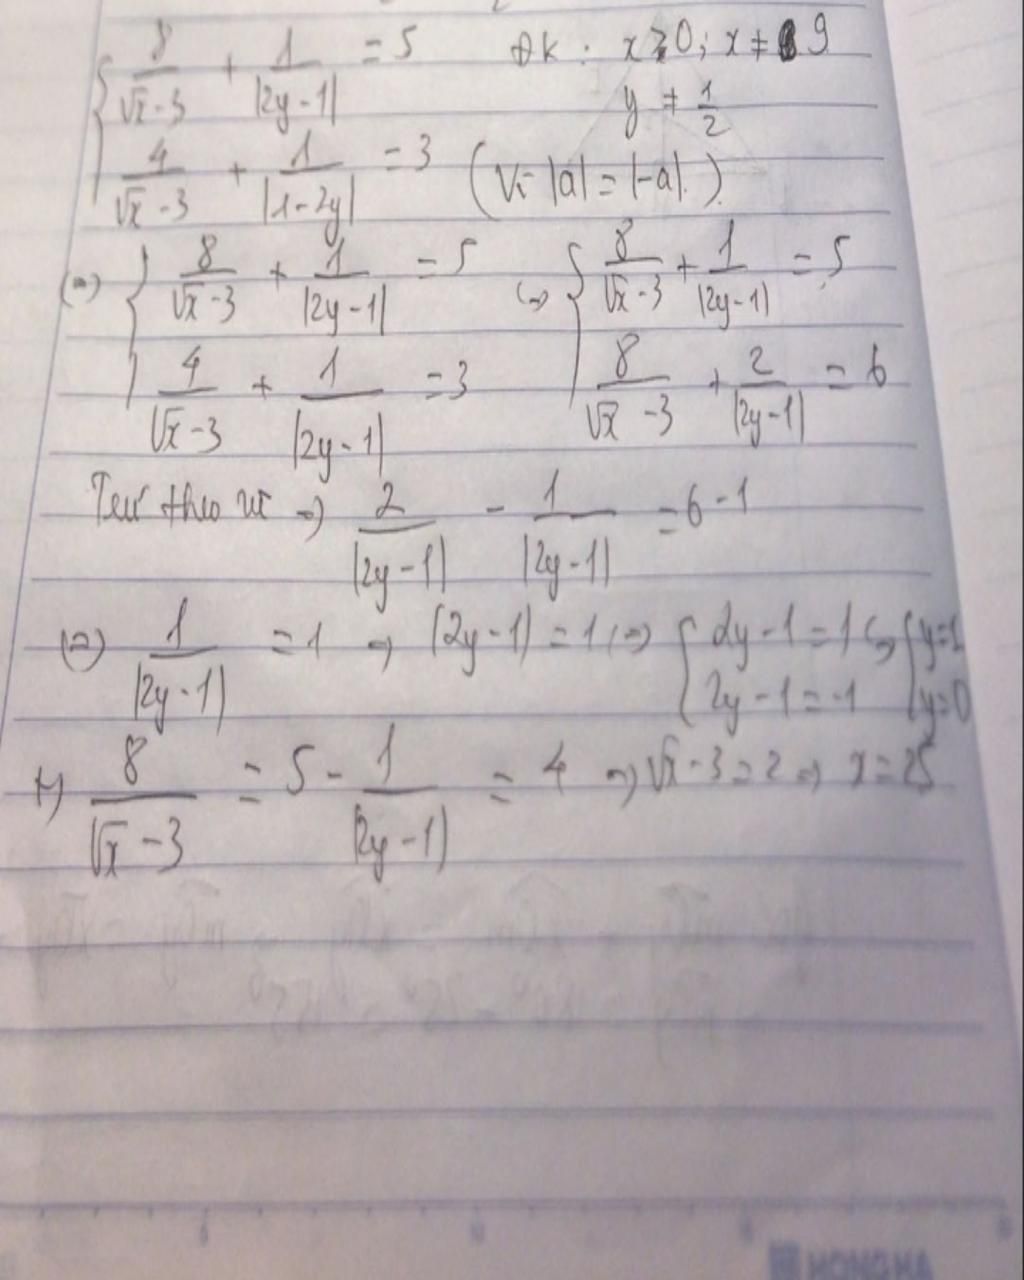 { 8/(√x - 3) + 1/|2y-1| = 5 ĐK : x ≥ 0; x ≠ 9
y ≠ 1/2
4/(√x - 3) + 1/|1-2y| = 3 (Vì |a| = |-a|.)
(=) { 8/(√x - 3) + 1/|2y-1| = 5 (=) { 8/(√x - 3) + 1/|2y-1| = 5
4/(√x - 3) + 1/|2y-1| = 3 8/(√x - 3) + 2/|2y-1| = 6
Trừ theo vế => 2/|2y-1| - 1/|2y-1| = 6 - 1
(=) 1/|2y-1| = 1 => |2y-1| = 1 (=) { 2y-1 = 1 (=) { y=1
2y-1 = -1 y=0
+) 8/(√x - 3) = 5 - 1/|2y-1| = 4 => √x - 3 = 2 => x = 25
HONG HA